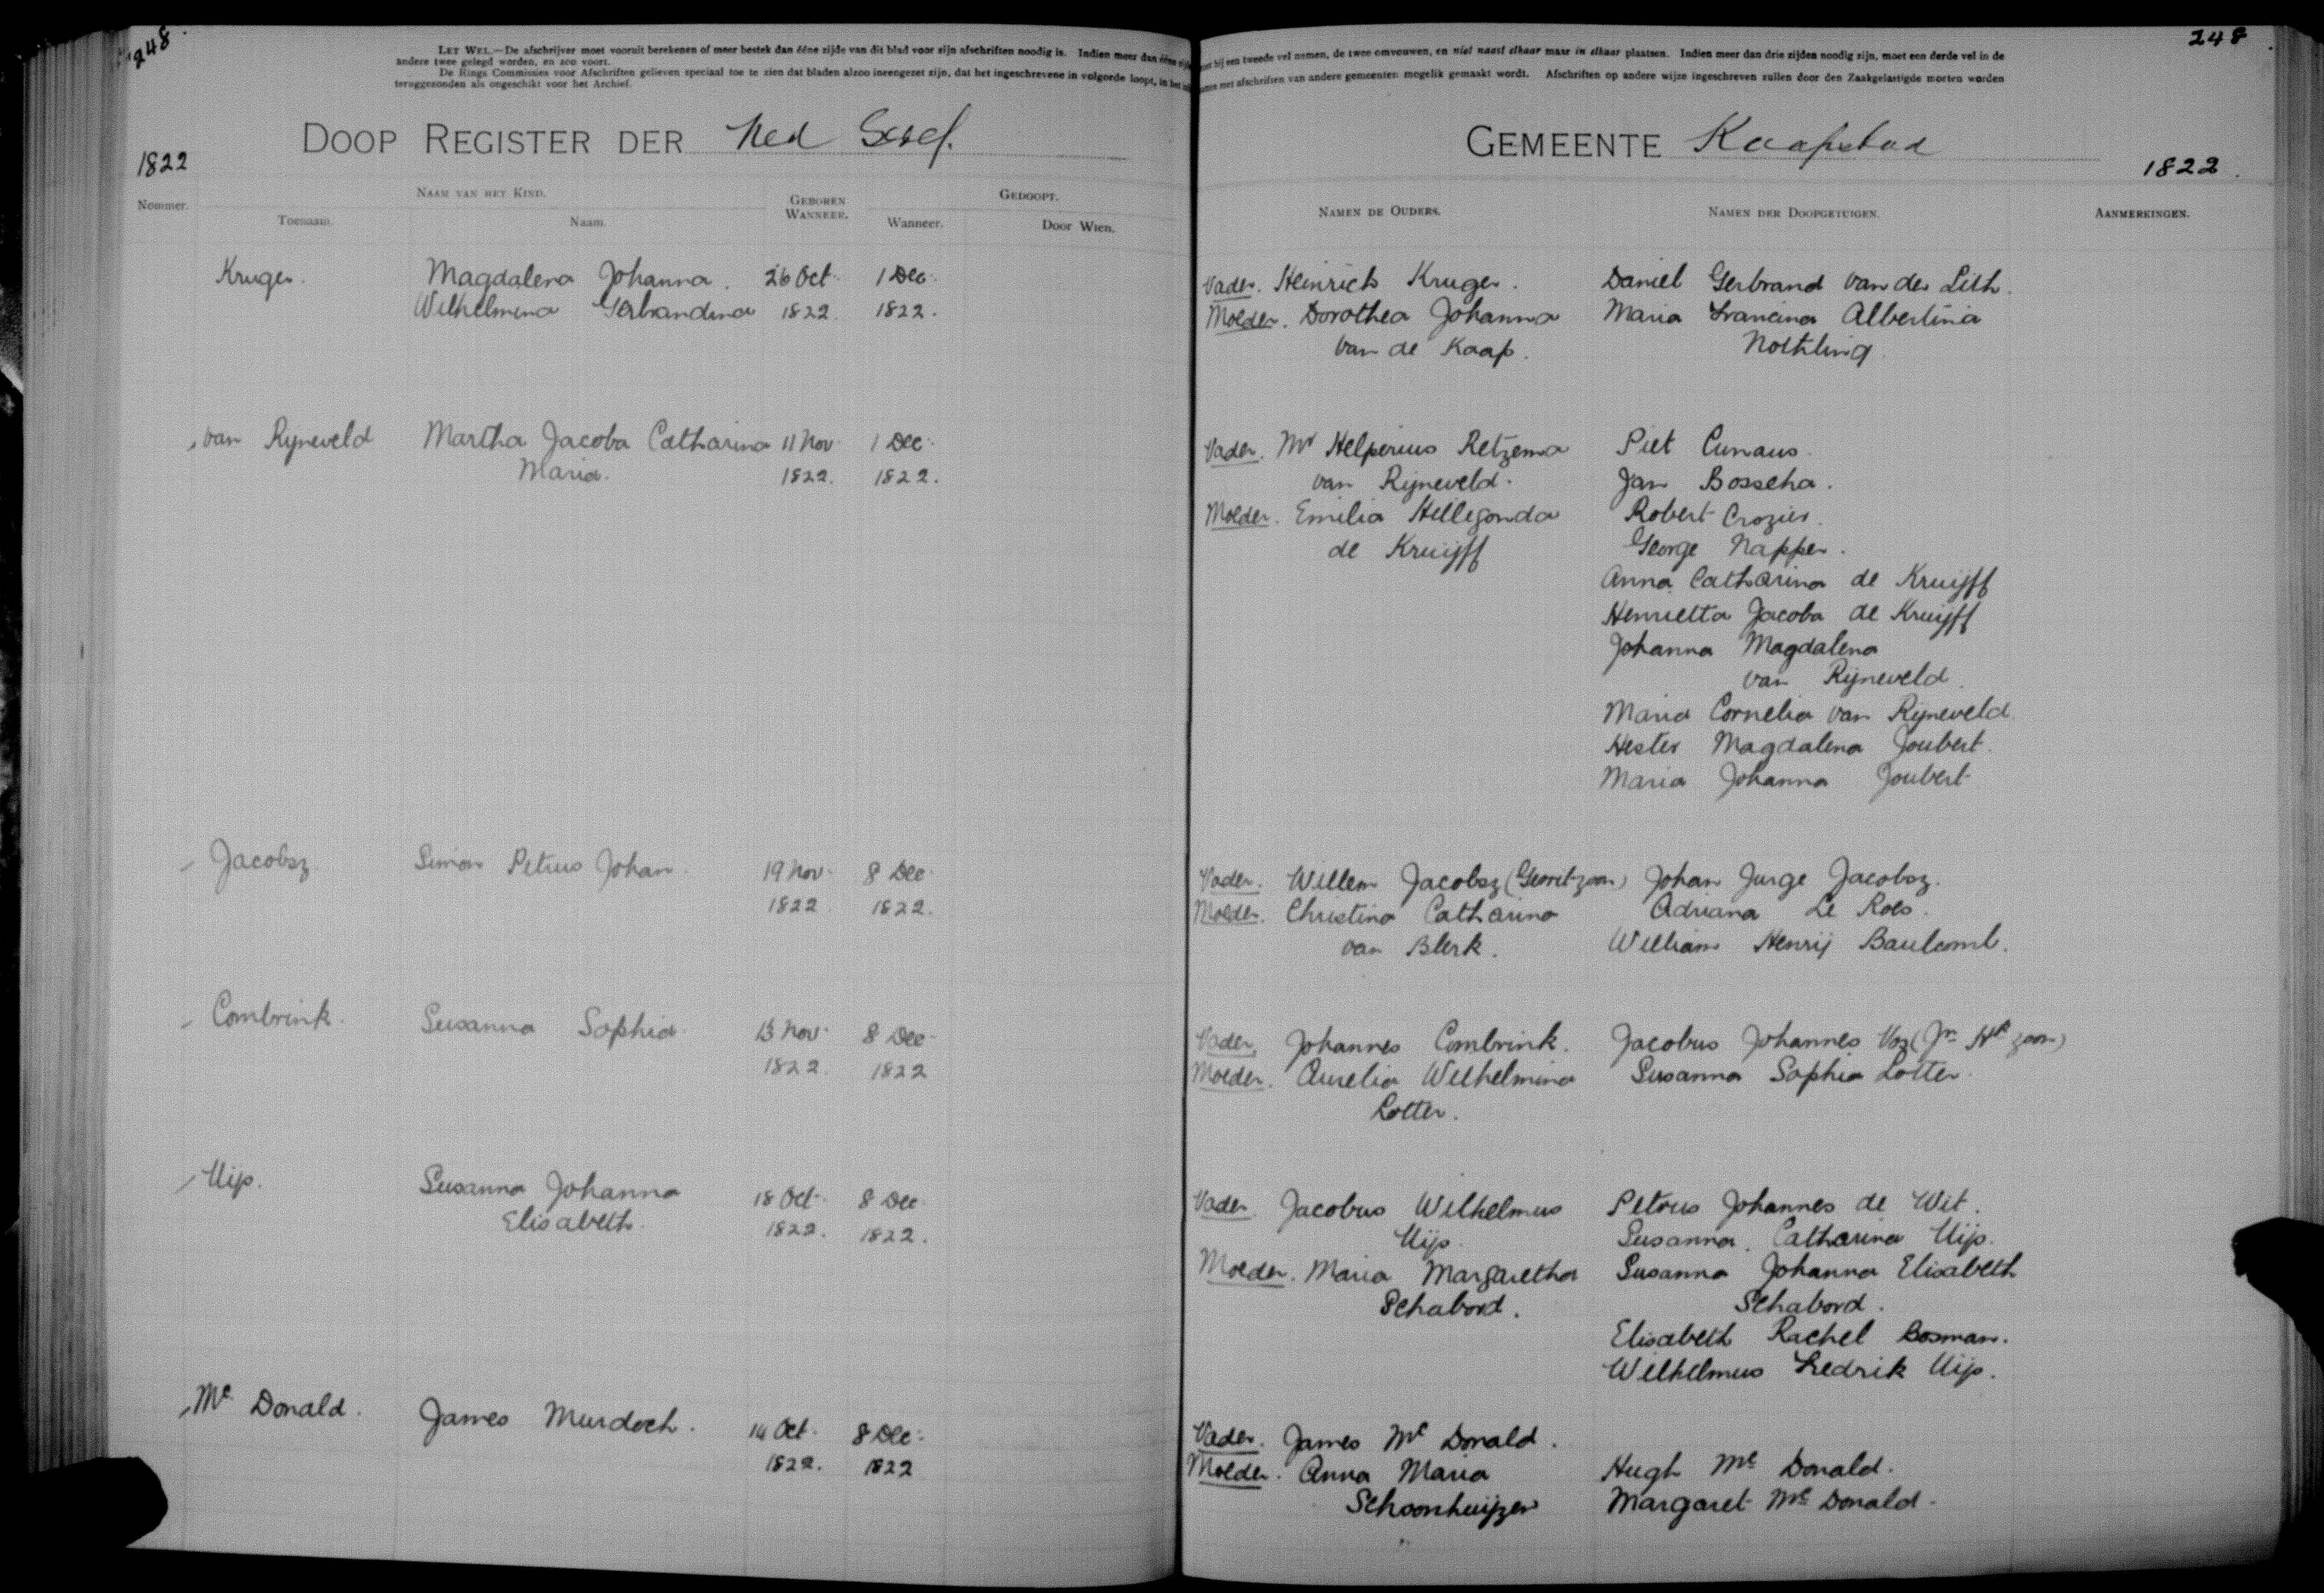 248
LET WEL.—De afschrijver moet vooruit berekenen of meer bestek dan ééne zijde van dit blad voor zijn afschriften noodig is. Indien meer dan ééne
andere twee gelegd worden, en zoo voort.
De Rings Commissies voor Afschriften gelieven speciaal toe te zien dat bladen alzoo ineengezet zijn, dat het ingeschrevene in volgorde loopt, in het
teruggezonden als ongeschikt voor het Archief.
DOOP REGISTER DER Ned Geref.
1822
Nommer.
NAAM VAN HET KIND.
Toenaam.
Naam.
GEBOREN
WANNEER.
GEDOOPT.
Wanneer.
Door Wien.
Kruger. Magdalena Johanna. 26 Oct. 1 Dec.
Wilhelmina Gerbrandina 1822. 1822.
van Ryneveld Martha Jacoba Catharina 11 Nov 1 Dec.
Maria. 1822. 1822.
Jacobsz Simon Petrus Johan. 19 Nov. 8 Dec.
1822 1822.
Combrink. Susanna Sophia. 13 Nov. 8 Dec.
1822. 1822
Uijs. Susanna Johanna 18 Oct. 8 Dec
Elisabeth. 1822. 1822.
Mc Donald. James Murdoch. 14 Oct. 8 Dec.
1822. 1822
248
bij een tweede vel nemen, de twee omvouwen, en niet naast elkaar maar in elkaar plaatsen. Indien meer dan drie zijden noodig zijn, moet een derde vel in de
met afschriften van andere gemeenten mogelik gemaakt wordt. Afschriften op andere wijze ingeschreven zullen door den Zaakgelastigde moeten worden
GEMEENTE Kaapstad
1822.
NAMEN DE OUDERS.
NAMEN DER DOOPGETUIGEN.
AANMERKINGEN.
Vader. Heinrich Kruger. Daniel Gerbrand van der Lith.
Moeder. Dorothea Johanna Maria Francina Albertina
van de Kaap. Nothling
Vader. Mr Helperius Retzema Piet Cunaus.
van Rijneveld. Jan Bosscha.
Moeder. Emilia Hillegonda Robert Crozier.
de Kruijff George Napper.
Anna Catharina de Kruijff
Henrietta Jacoba de Kruijff
Johanna Magdalena
van Rijneveld.
Maria Cornelia van Rijneveld.
Hester Magdalena Joubert.
Maria Johanna Joubert
Vader. Willem Jacobsz (Gerritzoon) Johan Jurge Jacobsz.
Moeder. Christina Catharina Adriana Le Roes.
van Blerk. William Henrij
Vader. Johannes Combrink. Jacobus Johannes Vos (Jn Hk zoon)
Moeder. Aurelia Wilhelmina Susanna Sophia Lotter.
Lotter.
Vader. Jacobus Wilhelmus Petrus Johannes de Wit.
Uijs. Susanna Catharina Uijs.
Moeder. Maria Margaretha Susanna Johanna Elisabeth
Schabord. Schabord.
Elisabeth Rachel Bosman.
Wilhelmus Fredrik Uijs.
Vader. James Mc Donald.
Moeder. Anna Maria Hugh Mc Donald.
Schoonhuijzen Margaret Mc Donald.